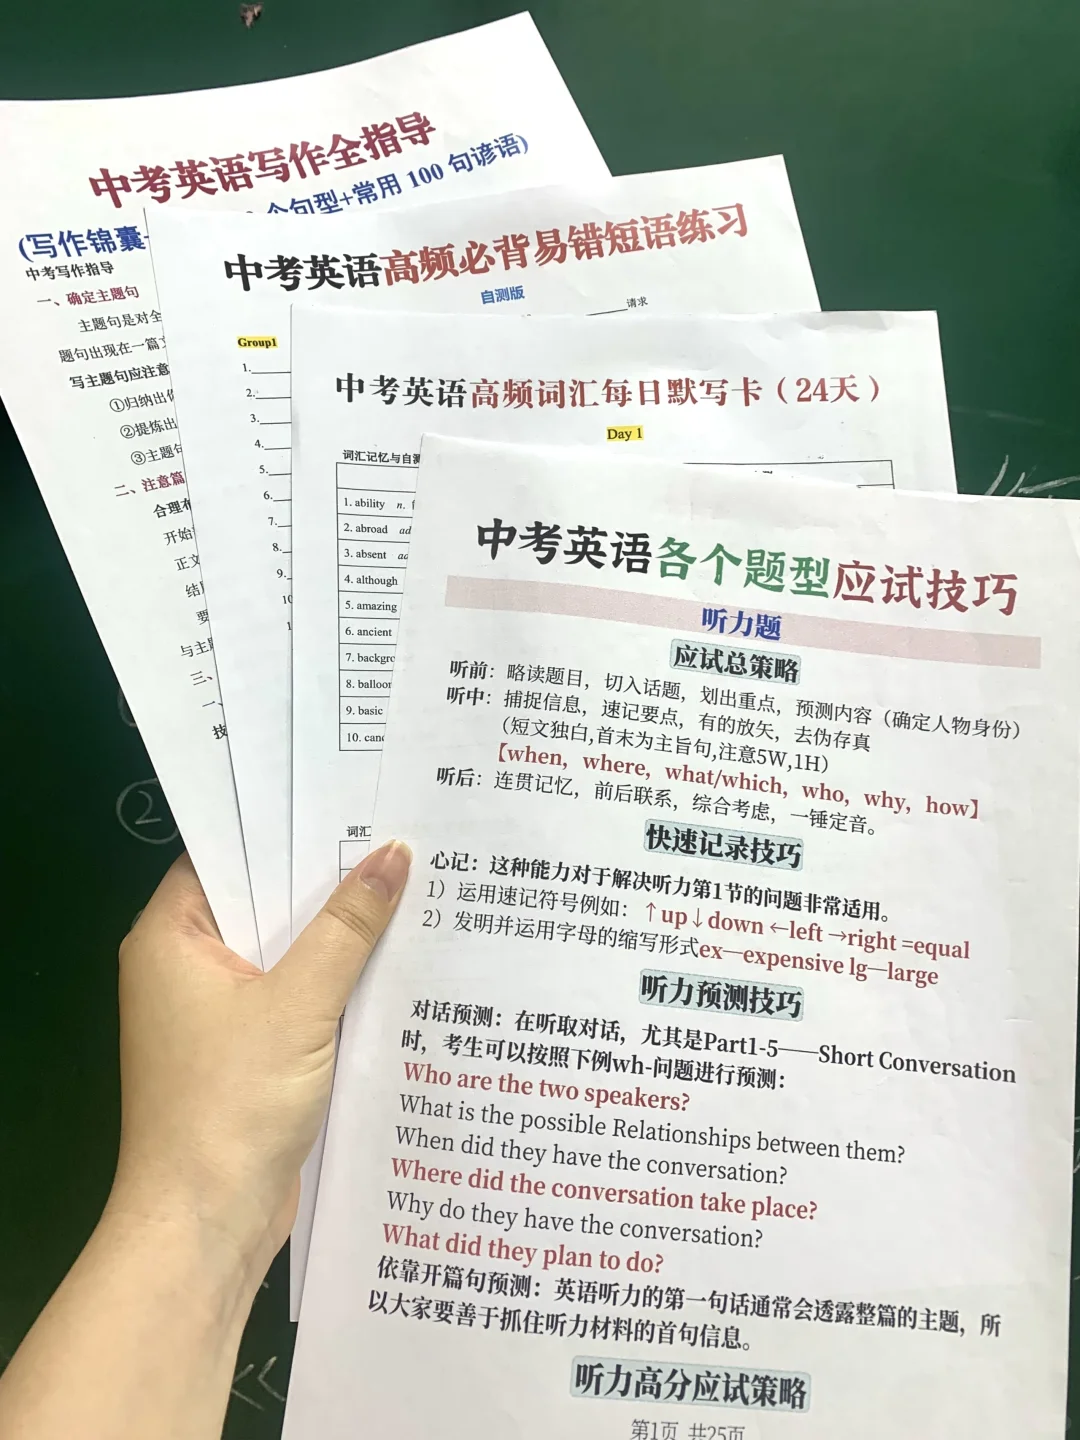 中考英语写作全指导
(写作锦囊
个句型+常用 100 句谚语)
中考写作指导
一、确定主题句
主题句是对全
题句出现在一篇
写主题句应注意
①归纳出
②提炼出
③主题句
二、注意篇
合理
开始
正文
结
要
与主
三、
一、
技
中考英语高频必背易错短语练习
自测版
请求
Group1
1.
2.
3.
4.
5.
6.
7.
8.
9.
10
1
中考英语高频词汇每日默写卡（24天）
Day 1
词汇记忆与自测
1. ability n.
2. abroad ad
3. absent ad
4. although
5. amazing
6. ancient
7. backgro
8. balloon
9. basic
10. canc
词汇
中考英语各个题型应试技巧
听力题
应试总策略
听前：略读题目，切入话题，划出重点，预测内容（确定人物身份）
听中：捕捉信息，速记要点，有的放矢，去伪存真
（短文独白,首末为主旨句,注意5W,1H）
【when，where，what/which，who，why，how】
听后：连贯记忆，前后联系，综合考虑，一锤定音。
快速记录技巧
心记：这种能力对于解决听力第1节的问题非常适用。
1）运用速记符号例如：↑up↓down ←left →right =equal
2）发明并运用字母的缩写形式ex—expensive lg—large
听力预测技巧
对话预测：在听取对话，尤其是Part1-5——Short Conversation
时，考生可以按照下例wh-问题进行预测：
Who are the two speakers?
What is the possible Relationships between them?
When did they have the conversation?
Where did the conversation take place?
Why do they have the conversation?
What did they plan to do?
依靠开篇句预测：英语听力的第一句话通常会透露整篇的主题，所
以大家要善于抓住听力材料的首句信息。
听力高分应试策略
第1页 共25页
②